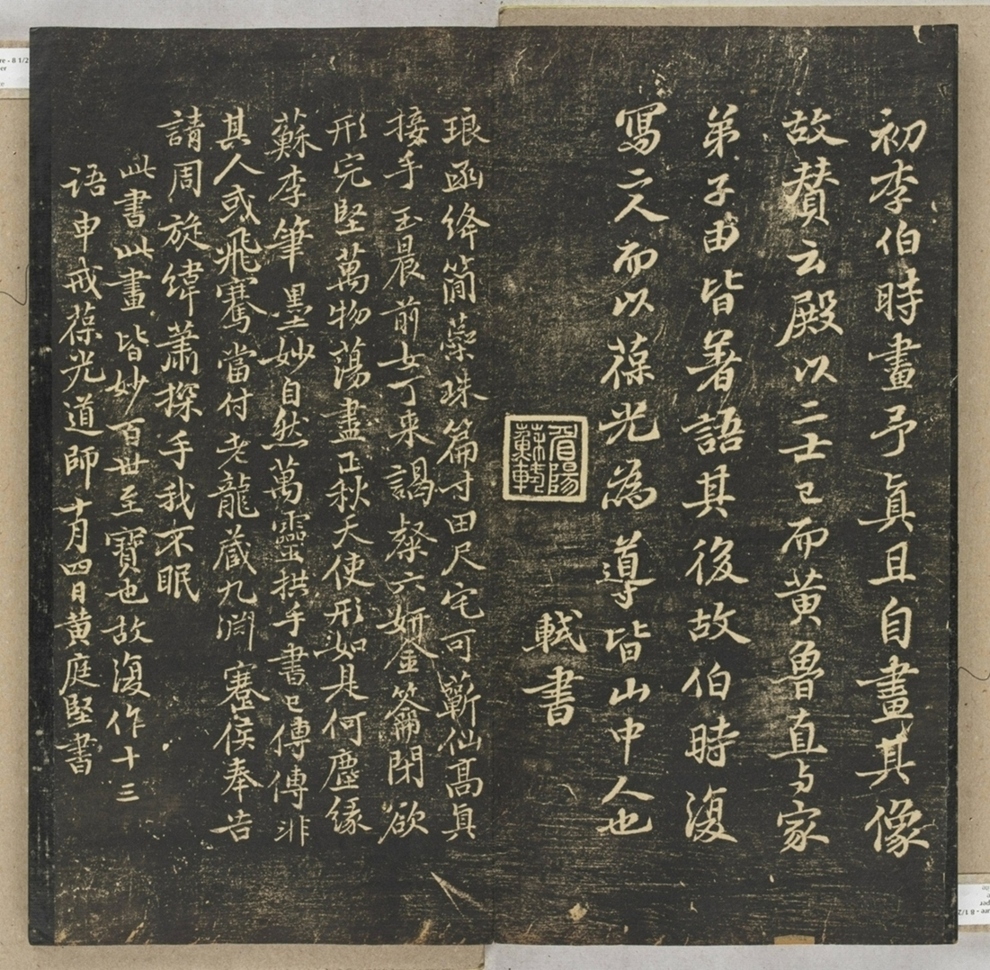 初李伯時畫予真且自畫其像
故贊云殿以二士已而黃魯直與家
弟子由皆著語其後故伯時復
寫二人而以葆光為導皆山中人也
軾書
眉陽蘇軾
琅函絳簡蘂珠篇寸田尺宅可蘄仙高真
接手玉晨前女丁來謁粲六妍金籥閉欲
形完堅萬物蕩盡正秋天使形如是何塵緣
蘇李筆墨妙自然萬靈拱手書已傳傳非
其人或飛騫當付老龍藏九淵蹇侯奉告
請周旋緯蕭探手我不眠
此書此畫皆妙百世至寶也故復作十三
語申戒葆光道師十月四日黃庭堅書